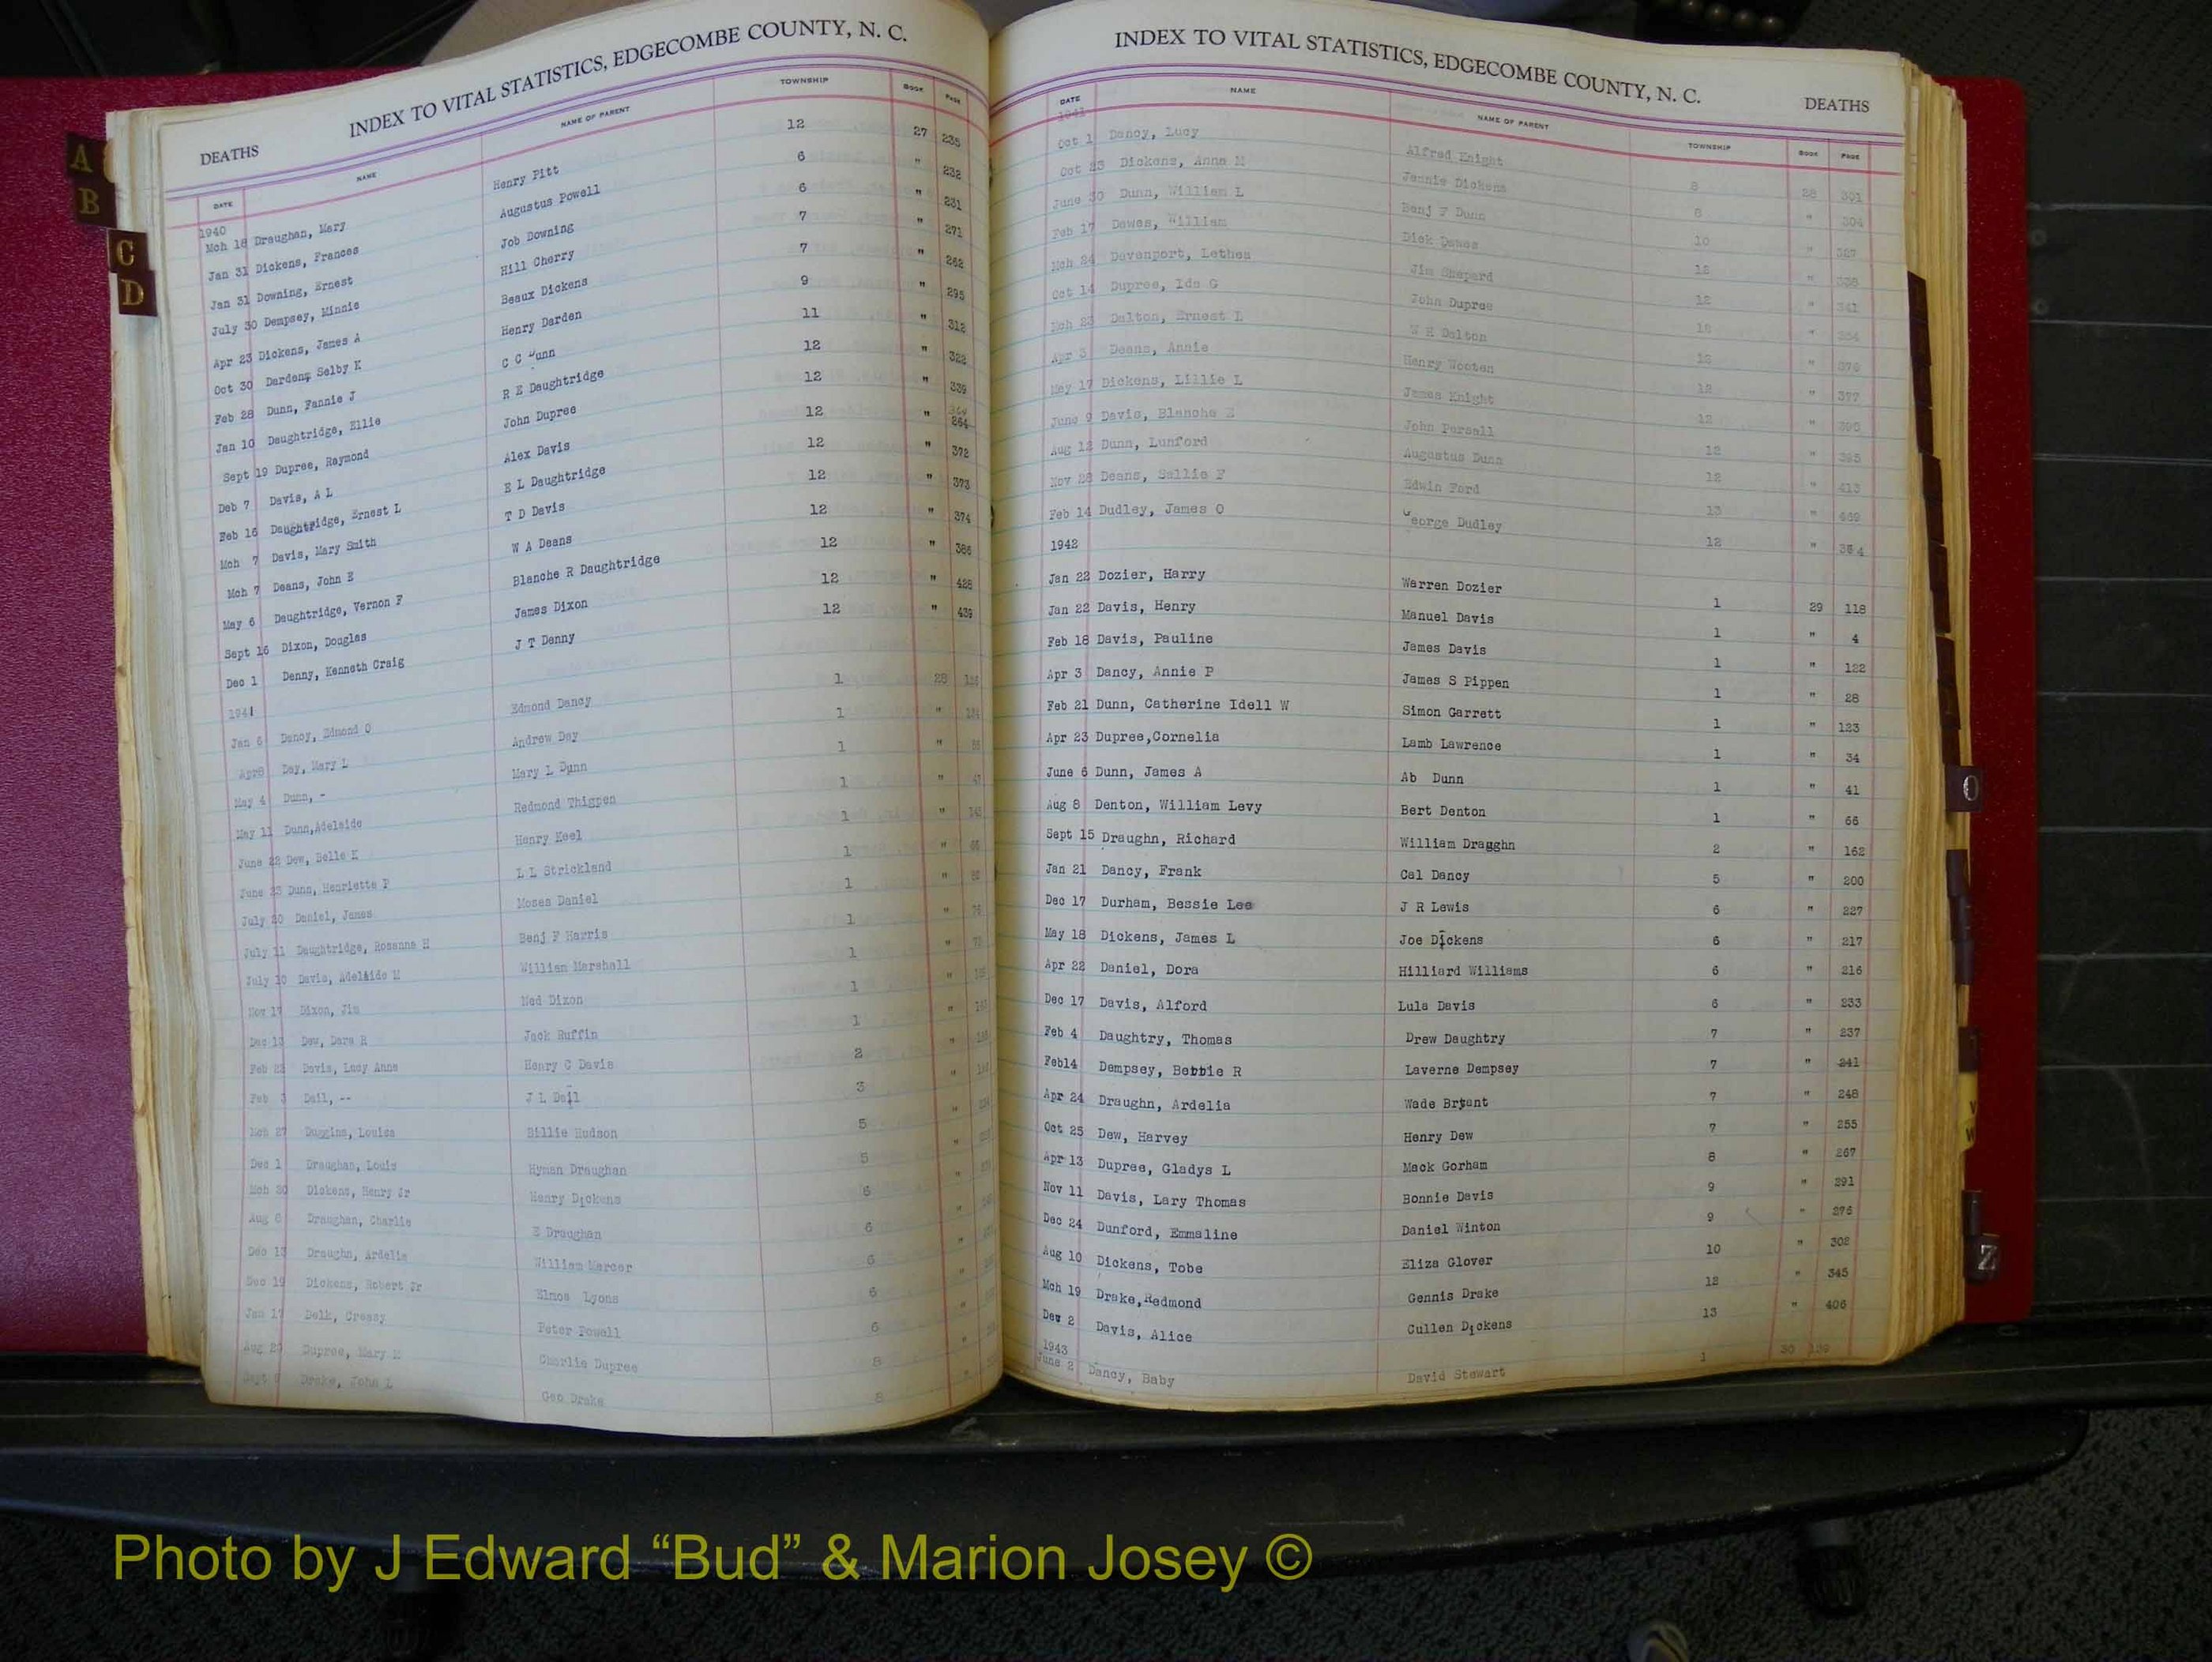 INDEX TO VITAL STATISTICS, EDGECOMBE COUNTY, N. C.
DEATHS
DATE NAME NAME OF PARENT TOWNSHIP BOOK PAGE
1940
Mch 18 Draughan, Mary Henry Pitt 12 27 235
Jan 31 Dickens, Frances Augustus Powell 6 " 232
Jan 31 Downing, Ernest Job Downing 6 " 231
July 30 Dempsey, Minnie Hill Cherry 7 " 271
Apr 23 Dickens, James A Beaux Dickens 7 " 262
Oct 30 Darden, Selby K Henry Darden 9 " 295
Feb 28 Dunn, Fannie J C C Dunn 11 " 312
Jan 10 Daughtridge, Ellie R E Daughtridge 12 " 322
Sept 19 Dupree, Raymond John Dupree 12 " 339
Deb 7 Davis, A L Alex Davis 12 " 264
Feb 16 Daughtridge, Ernest L E L Daughtridge 12 " 372
Mch 7 Davis, Mary Smith T D Davis 12 " 373
Mch 7 Deans, John E W A Deans 12 " 374
May 6 Daughtridge, Vernon F Blanche R Daughtridge 12 " 386
Sept 16 Dixon, Douglas James Dixon 12 " 428
Dec 1 Denny, Kenneth Craig J T Denny 12 " 439
1941
Jan 6 Dancy, Edmond O Edmond Dancy 1 28
Apr8 Day, Mary L Andrew Day 1 "
May 4 Dunn, - Mary L Dunn 1 "
May 11 Dunn,Adelaide Redmond Thigpen 1 "
June 22 Dew, Belle K Henry Keel 1 "
June 23 Dunn, Henriette P L L Strickland 1 "
July 20 Daniel, James Moses Daniel 1 "
July 11 Daughtridge, Rosanna H Benj F Harris 1 "
July 10 Davis, Adelaide M William Marshall 1 "
Nov 17 Dixon, Jim Ned Dixon 1 "
Dec 13 Dew, Dara R Jack Ruffin 1 "
Feb 22 Davis, Lucy Anne Henry C Davis 2 "
Feb 3 Dail, -- J L Dail 3 "
Mch 27 Duggins, Louisa Billie Hudson 5 "
Dec 1 Draughan, Louis Hyman Draughan 5 "
Mch 30 Dickens, Henry Jr Henry Dickens 6 "
Aug 6 Draughan, Charlie E Draughan 6 "
Dec 13 Draughn, Ardelia William Mercer 6 "
Dec 19 Dickens, Robert Jr Elnos Lyons 6 "
Jan 17 Delk, Cressy Peter Powell 6 "
Aug 23 Dupree, Mary M Charlie Dupree 8 "
Sept Drake, John L Geo Drake 8
INDEX TO VITAL STATISTICS, EDGECOMBE COUNTY, N. C.
DEATHS
DATE NAME NAME OF PARENT TOWNSHIP BOOK PAGE
1941
Oct 1 Dancy, Lucy Alfred Knight 8 28 301
Oct 23 Dickens, Anna M Jennie Dickens 8 " 304
June 30 Dunn, William L Benj F Dunn 10 " 327
Feb 17 Dawes, William Dick Dawes 12 " 338
Mch 24 Davenport, Lethea Jim Shepard 12 " 341
Oct 14 Dupree, Ida G John Dupree "
Mch 23 Dalton, Ernest L W H Dalton 12 " 376
Apr 3 Deans, Annie Henry Wooten 12 " 377
May 17 Dickens, Lillie L James Knight 12 "
June 9 Davis, Blanche E John Persall 12 " 395
Aug 12 Dunn, Lunford Augustus Dunn 12 " 413
Nov 28 Deans, Sallie F Edwin Ford 13 "
Feb 14 Dudley, James O George Dudley 12 "
1942
Jan 22 Dozier, Harry Warren Dozier 1 29 118
Jan 22 Davis, Henry Manuel Davis 1 " 4
Feb 18 Davis, Pauline James Davis 1 " 122
Apr 3 Dancy, Annie P James S Pippen 1 " 28
Feb 21 Dunn, Catherine Idell W Simon Garrett 1 " 123
Apr 23 Dupree,Cornelia Lamb Lawrence 1 " 34
June 6 Dunn, James A Ab Dunn 1 " 41
Aug 8 Denton, William Levy Bert Denton 1 " 66
Sept 15 Draughn, Richard William Draughn 2 " 162
Jan 21 Dancy, Frank Cal Dancy 5 " 200
Dec 17 Durham, Bessie Lee J R Lewis 6 " 227
May 18 Dickens, James L Joe Dickens 6 " 217
Apr 22 Daniel, Dora Hilliard Williams 6 " 216
Dec 17 Davis, Alford Lula Davis 6 " 233
Feb 4 Daughtry, Thomas Drew Daughtry 7 " 237
Feb14 Dempsey, Bebbie R Laverne Dempsey 7 " 241
Apr 24 Draughn, Ardelia Wade Bryant 7 " 248
Oct 25 Dew, Harvey Henry Dew 7 " 255
Apr 13 Dupree, Gladys L Mack Gorham 8 " 267
Nov 11 Davis, Lary Thomas Bonnie Davis 9 " 291
Dec 24 Dunford, Emmaline Daniel Winton 9 " 276
Aug 10 Dickens, Tobe Eliza Glover 10 " 302
Mch 19 Drake,Redmond Gennis Drake 12 " 345
Dec 2 Davis, Alice Cullen Dickens 13 " 406
1943
June 2 Dancy, Baby David Stewart 1 30 139
A
B
C
D
O
V
W
Z
Photo by J Edward “Bud” & Marion Josey ©